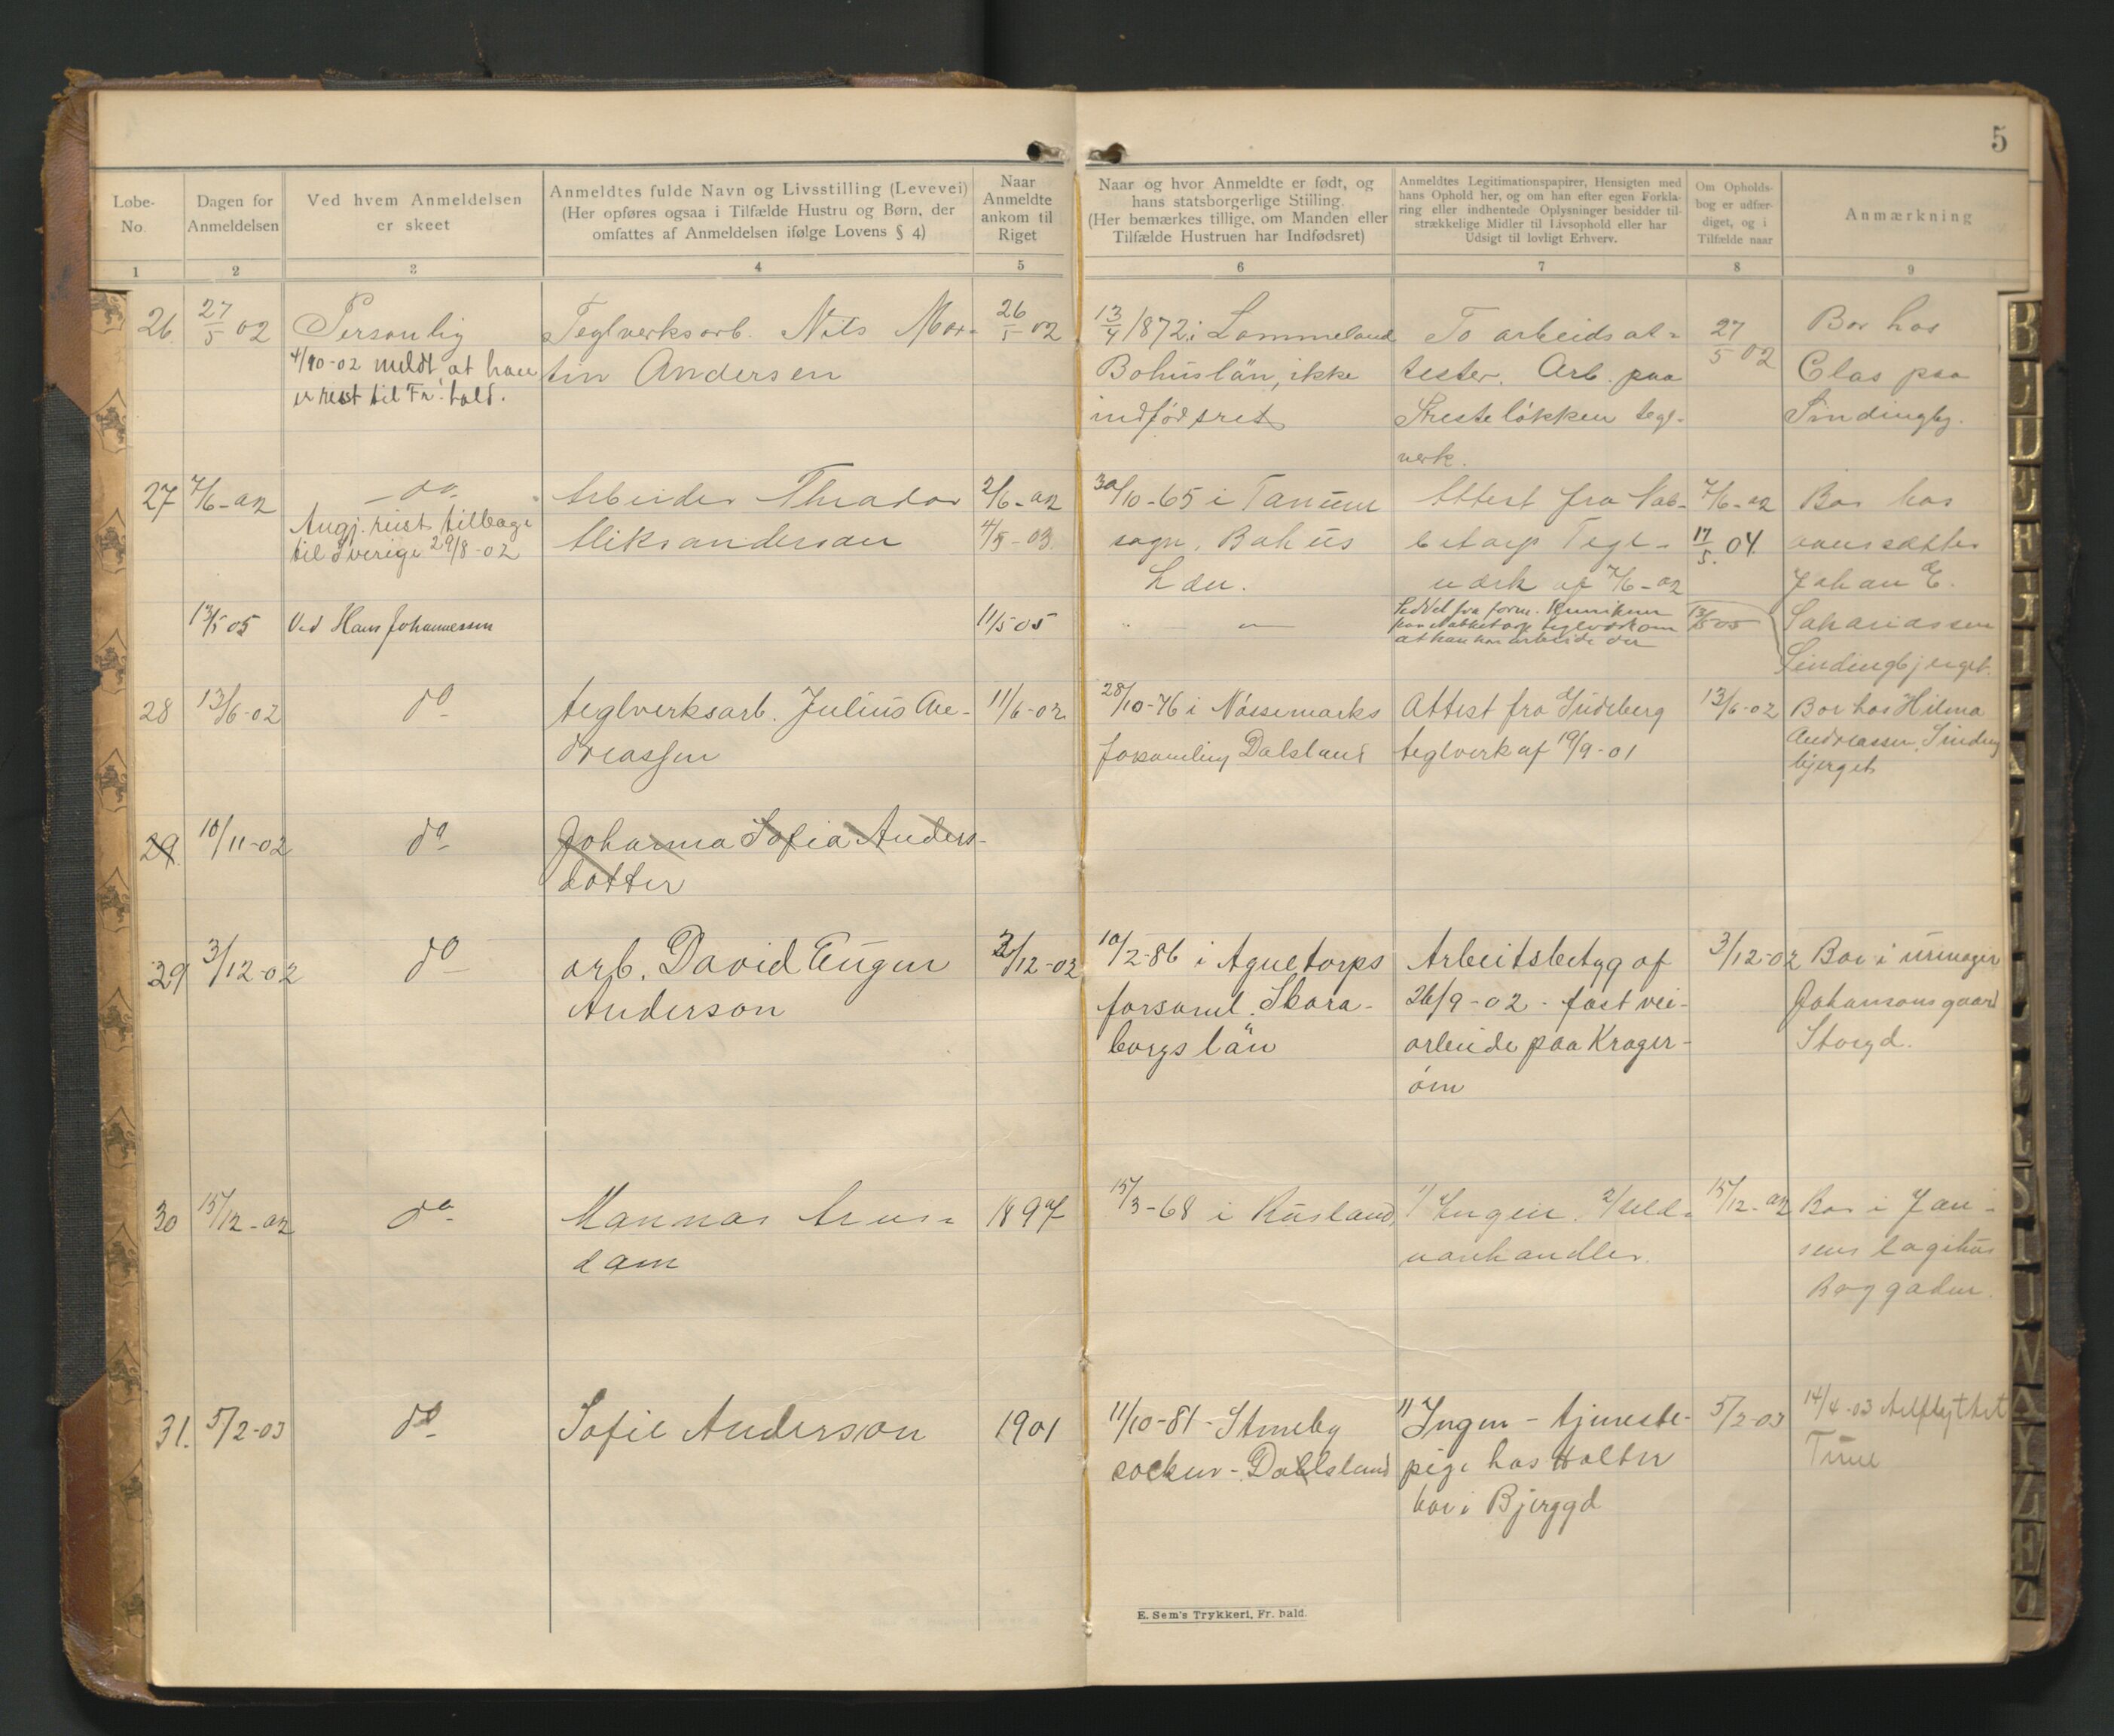 5
Løbe-
No.
Dagen for
Anmeldelsen
Ved hvem Anmeldelsen
er skeet
Anmeldtes fulde Navn og Livsstilling (Levevei)
(Her opføres ogsaa i Tilfælde Hustru og Børn, der
omfattes af Anmeldelsen ifølge Lovens § 4)
Naar
Anmeldte
ankom til
Riget
Naar og hvor Anmeldte er født, og
hans statsborgerlige Stiilling.
(Her bemærkes tillige, om Manden eller
Tilfælde Hustruen har Indfødsret)
Anmeldtes Legitimationspapirer, Hensigten med
hans Ophold her, og om han efter egen Forkla-
ring eller indhentede Oplysninger besidder til-
strækkelige Midler til Livsophold eller har
Udsigt til lovligt Erhverv.
Om Opholds-
bog er udfær-
diget, og i
Tilfælde naar
Anmærkning
1 2 3 4 5 6 7 8 9
26. 27/5 02 Personlig Teglverksarb. Nils Mar- 26/5 02 13/4 1872 i Lommeland To arbeidsat- 27/5 02 Bor hos
4/10-02 meldt at han tin Andersen Bohuslän, ikke tester. Arb. paa Clas paa
er reist til Fr.hald. indfødsret teglverk Sindingbj.
27 7/6-02 do Arbeider Theodor 2/6-02 30/10-65 i Tanum Attest fra Nab- 7/6-02 Bor hos
Angj. reist tilbage Aliksanderson 4/5-03 sogn, Bahus betorp Tegl- 17/5 04
til Sverige 29/8-02 Län. værk af 7/6-02 Johan E.
13/5 05 Ved Hans Johannessen 11/5 05 " — " — at han har arbeide der 13/5 05 Sakariassen
Sindingbjerget.
28 13/6-02 do teglverksarb. Julius An- 11/6-02 28/10-76 i Nössemarks Attest fra Gudeberg 13/6-02 Bor hos Hilma
dreassen forsamling Dalsland teglverk af 19/9-01 Andreassen, Sinding
bjerget
29. 10/11-02 do Johanna Sofia Anders-
dotter
29 3/12-02 do arb. David Eugen 2/12-02 10/2-86 i Agnetorps Arbeitsbetyg af 3/12-02 Bor i urmager
Anderson forsaml. Skara- 26/9-02 - fast vei- Johansons gaard
borgs län arbeide paa Krager- Storgd.
øen
30 15/12-02 do 1897 15/3-68 i Rusland 1/ Ingen. 2/ Uld- 15/12-02 Bor i Jan-
dam varehandler. sens
31. 5/2-03 do Sofie Anderson 1901 11/10-81 - Steneby 1/ Ingen - tjeneste- 5/2-03 14/4-03 Utflyttet
socken - Dalsland pige hos Holter Tune
bor i Bjerggd
E. Sem's Trykkeri, Fr. hald.